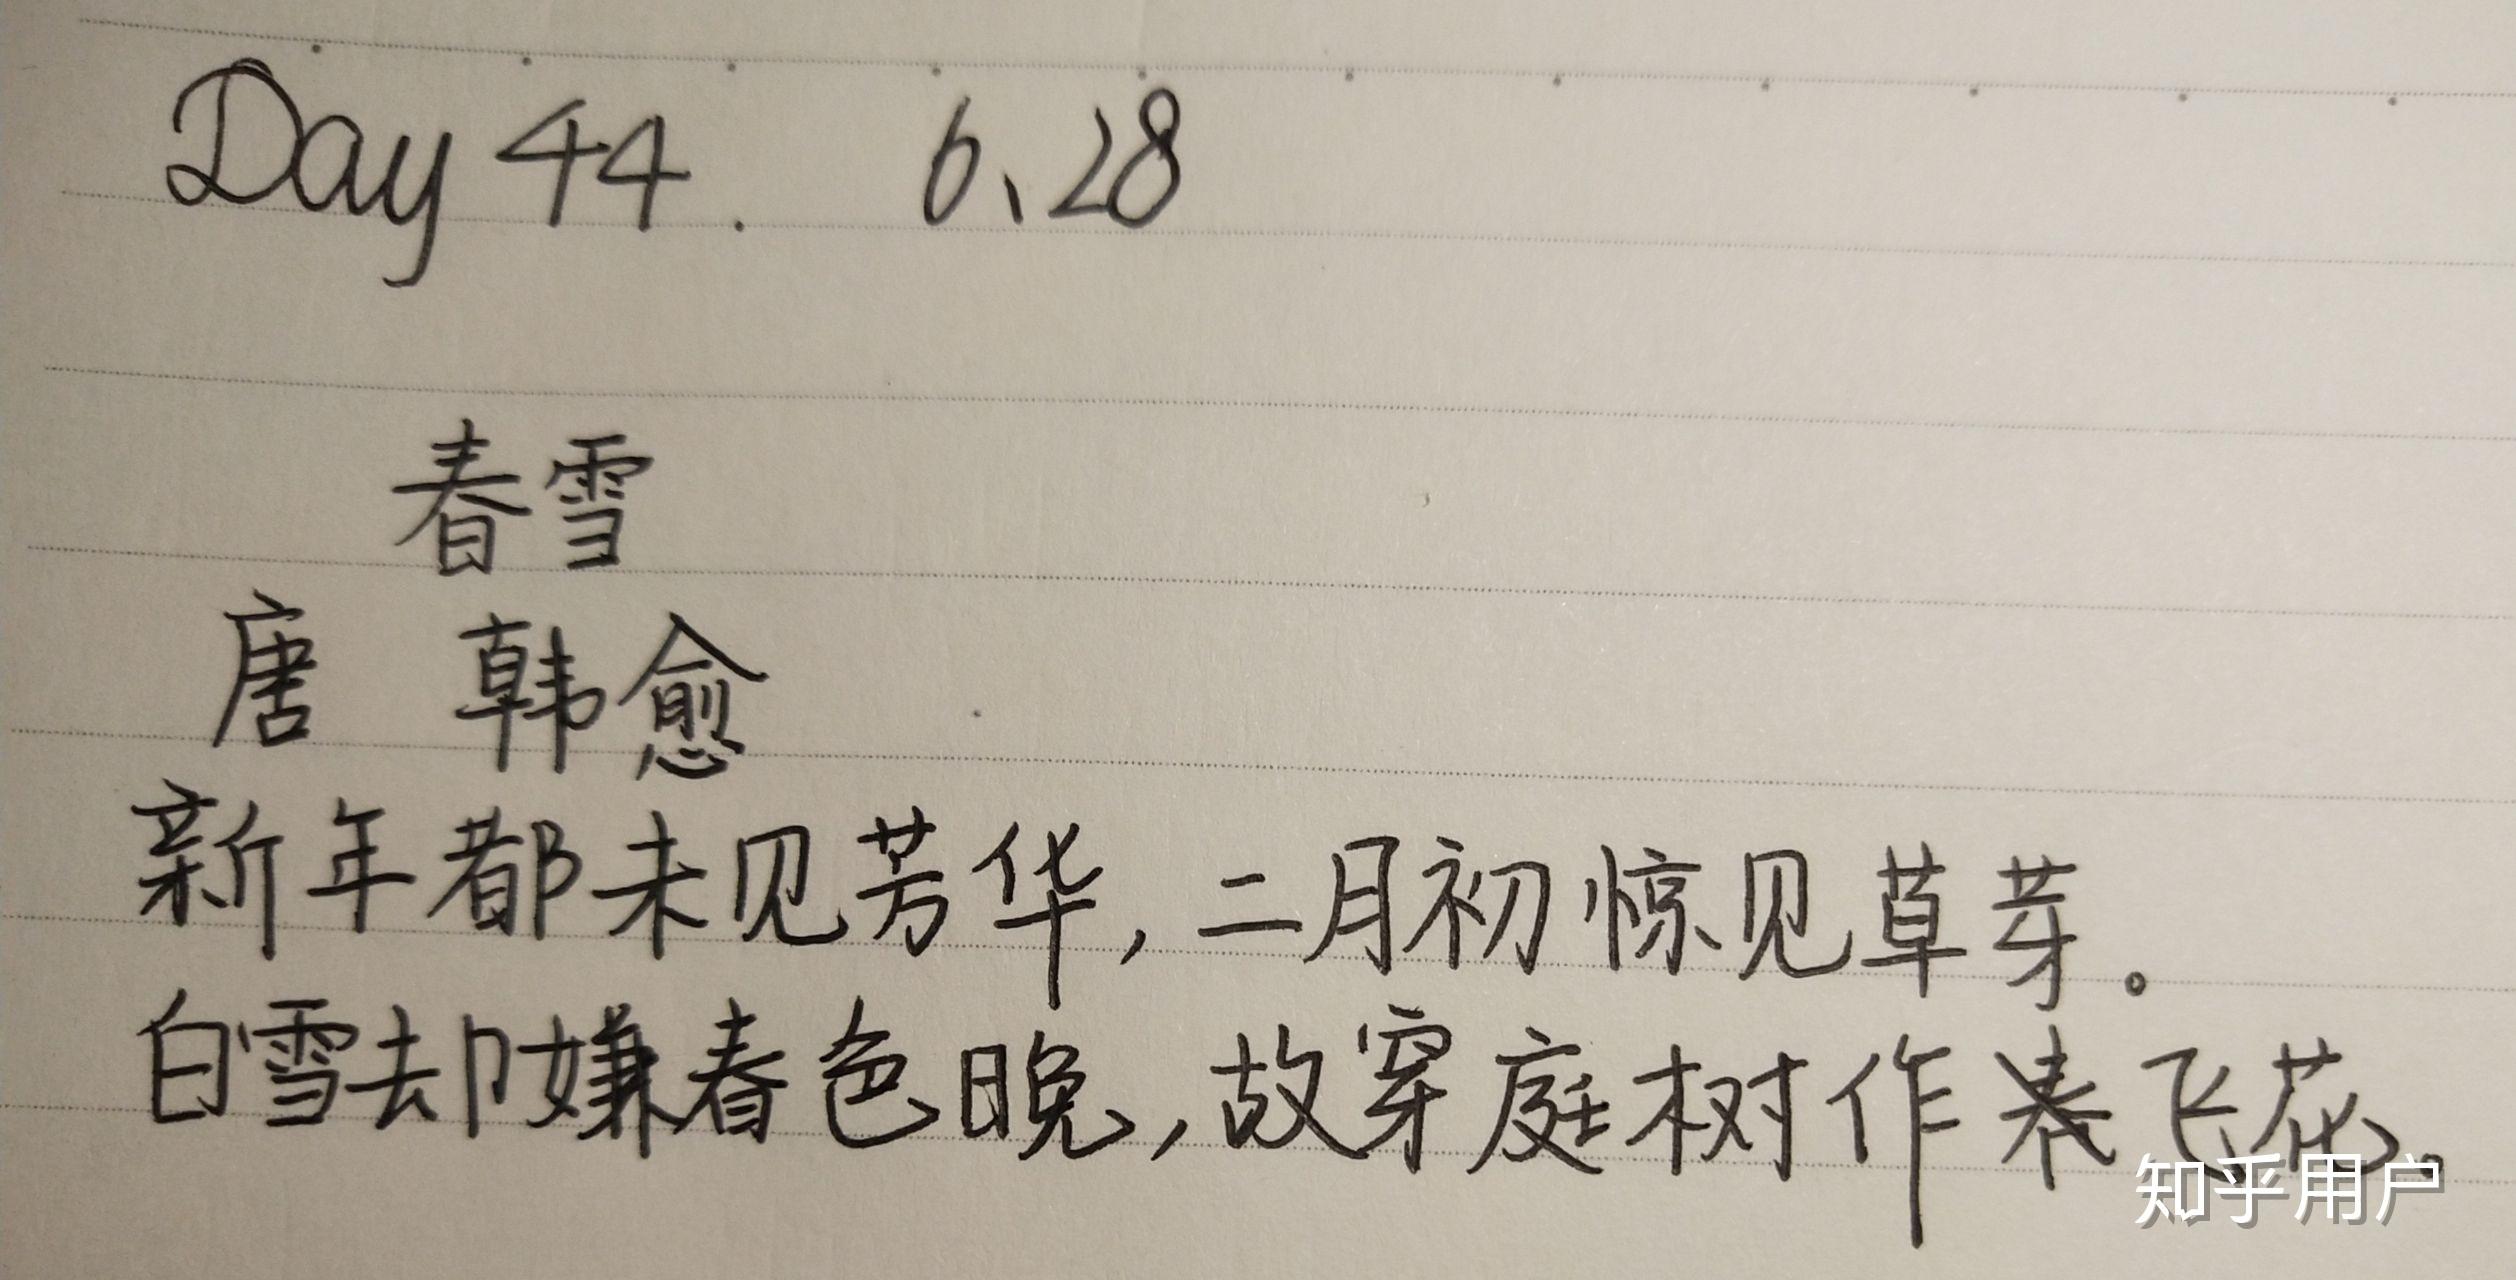 Day 44. 6、28
春雪
唐 韩愈
新年都未见芳华,二月初惊见草芽。
白雪却嫌春色晚,故穿庭树作飞花。
知乎用户